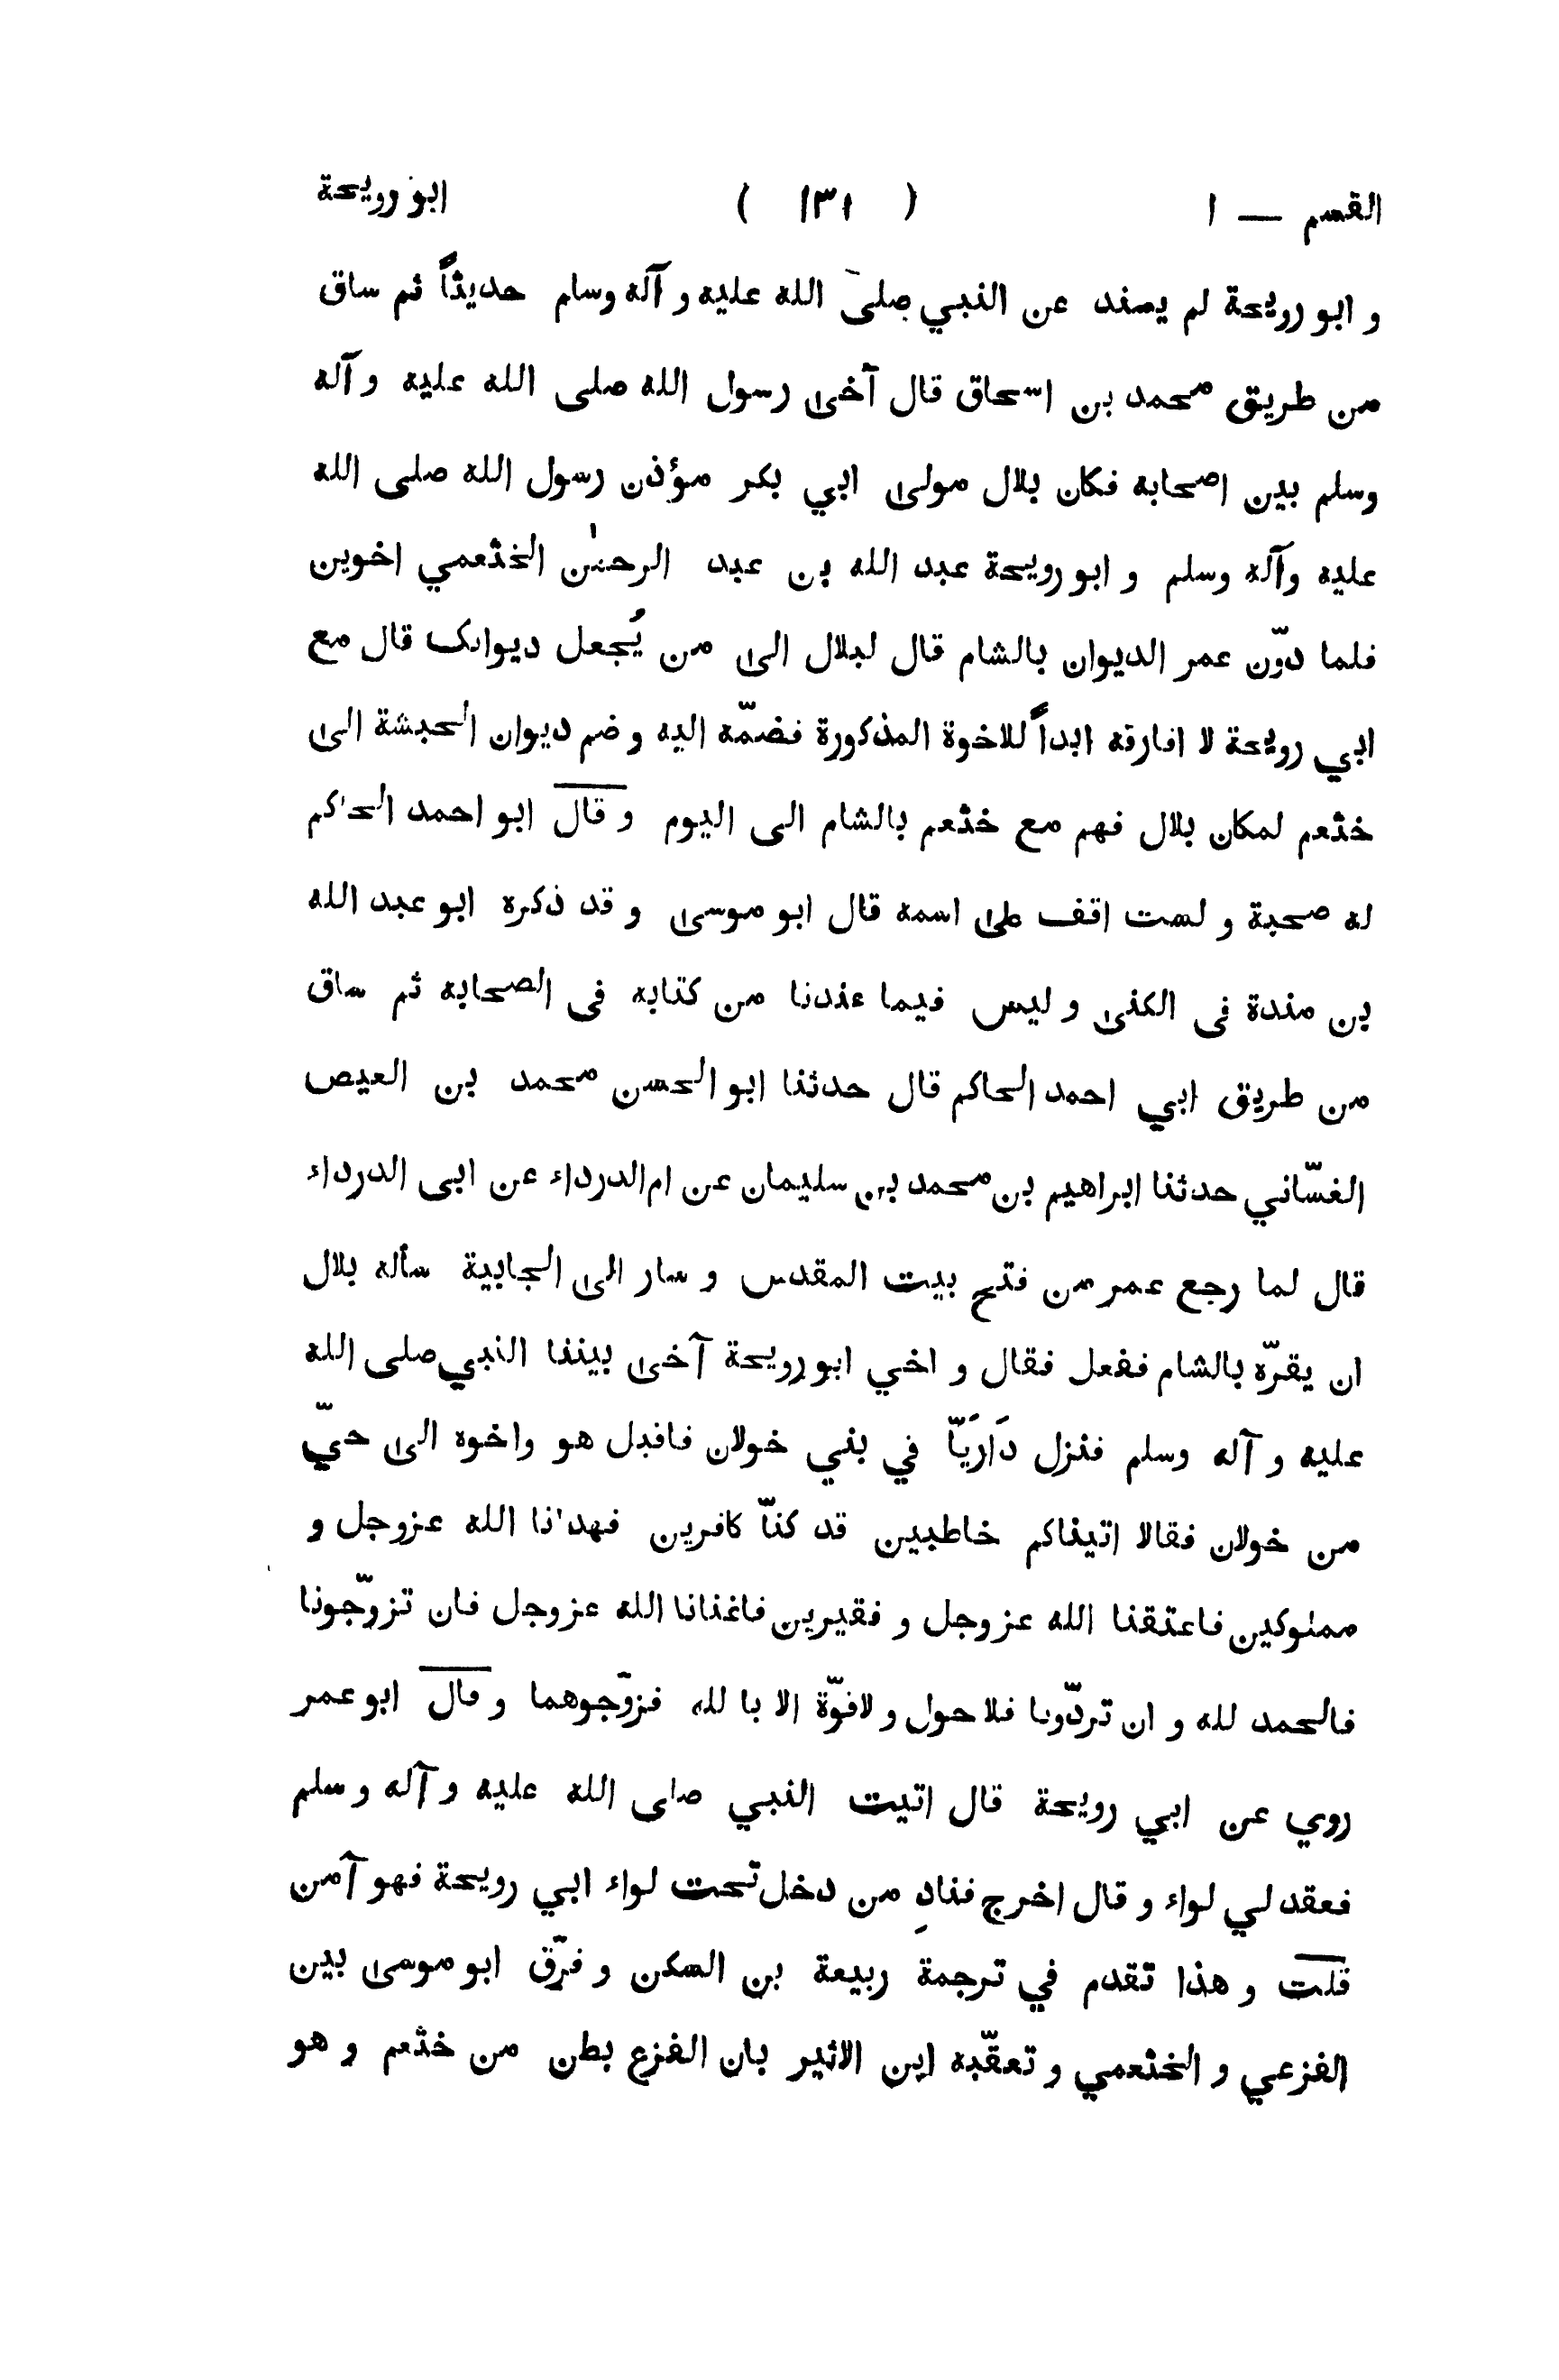 القسم — ١ ( ١٣١ ) ابو رويحة
و ابو رويحة لم يسند عن النبي صلى الله عليه و آله وسلم حديثاً ثم ساق
من طريق محمد بن اسحاق قال آخى رسول الله صلى الله عليه و آله
وسلم بين اصحابه فكان بلال مولى ابي بكر مؤذن رسول الله صلى الله
عليه وآله وسلم و ابو رويحة عبد الله بن عبد الرحمٰن الخثعمي اخوين
فلما دوّن عمر الديوان بالشام قال لبلال الى من يُجعل ديوانك قال مع
ابي رويحة لا افارقه ابداً للاخوة المذكورة فضمّه اليه و ضم ديوان الحبشة الى
خثعم لمكان بلال فهم مع خثعم بالشام الى اليوم و قال ابو احمد الحاكم
له صحبة و لست اقف على اسمه قال ابو موسى و قد ذكره ابو عبد الله
بن مندة فى الكنى و ليس فيما عندنا من كتابه فى الصحابه ثم ساق
من طريق ابي احمد الحاكم قال حدثنا ابو الحسن محمد بن العيص
الغسّاني حدثنا ابراهيم بن محمد بن سليمان عن ام الدرداء عن ابى الدرداء
قال لما رجع عمر من فتح بيت المقدس و سار الى الجابية سأله بلال
ان يقرّه بالشام ففعل فقال و اخي ابو رويحة آخى بيننا النبي صلى الله
عليه و آله وسلم فنزل دَارَيّا في بني خولان فاقبل هو واخوه الى حيّ
من خولان فقالا اتيناكم خاطبين قد كنّا كافرين فهدانا الله عزوجل و
مملوكين فاعتقنا الله عزوجل و فقيرين فاغنانا الله عزوجل فان تزوّجونا
فالحمد لله و ان تردّونا فلا حول و لا قوّة الا با لله فزوّجوهما و قال ابو عمر
روي عن ابي رويحة قال اتيت النبي صلى الله عليه و آله و سلم
فعقد لي لواء و قال اخرج فنادِ من دخل تحت لواء ابي رويحة فهو آمن
قلت و هذا تقدم في ترجمة ربيعة بن السكن و فرّق ابو موسى بين
الفزعي و الخثعمي و تعقّبه ابن الاثير بان الفزع بطن من خثعم و هو